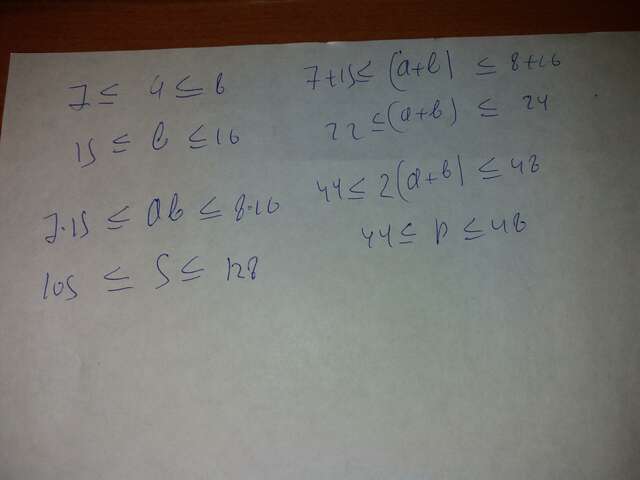 7 ≤ a ≤ 8
15 ≤ b ≤ 16
7·15 ≤ ab ≤ 8·16
105 ≤ S ≤ 128
7+15 ≤ (a+b) ≤ 8+16
22 ≤ (a+b) ≤ 24
44 ≤ 2(a+b) ≤ 48
44 ≤ p ≤ 48